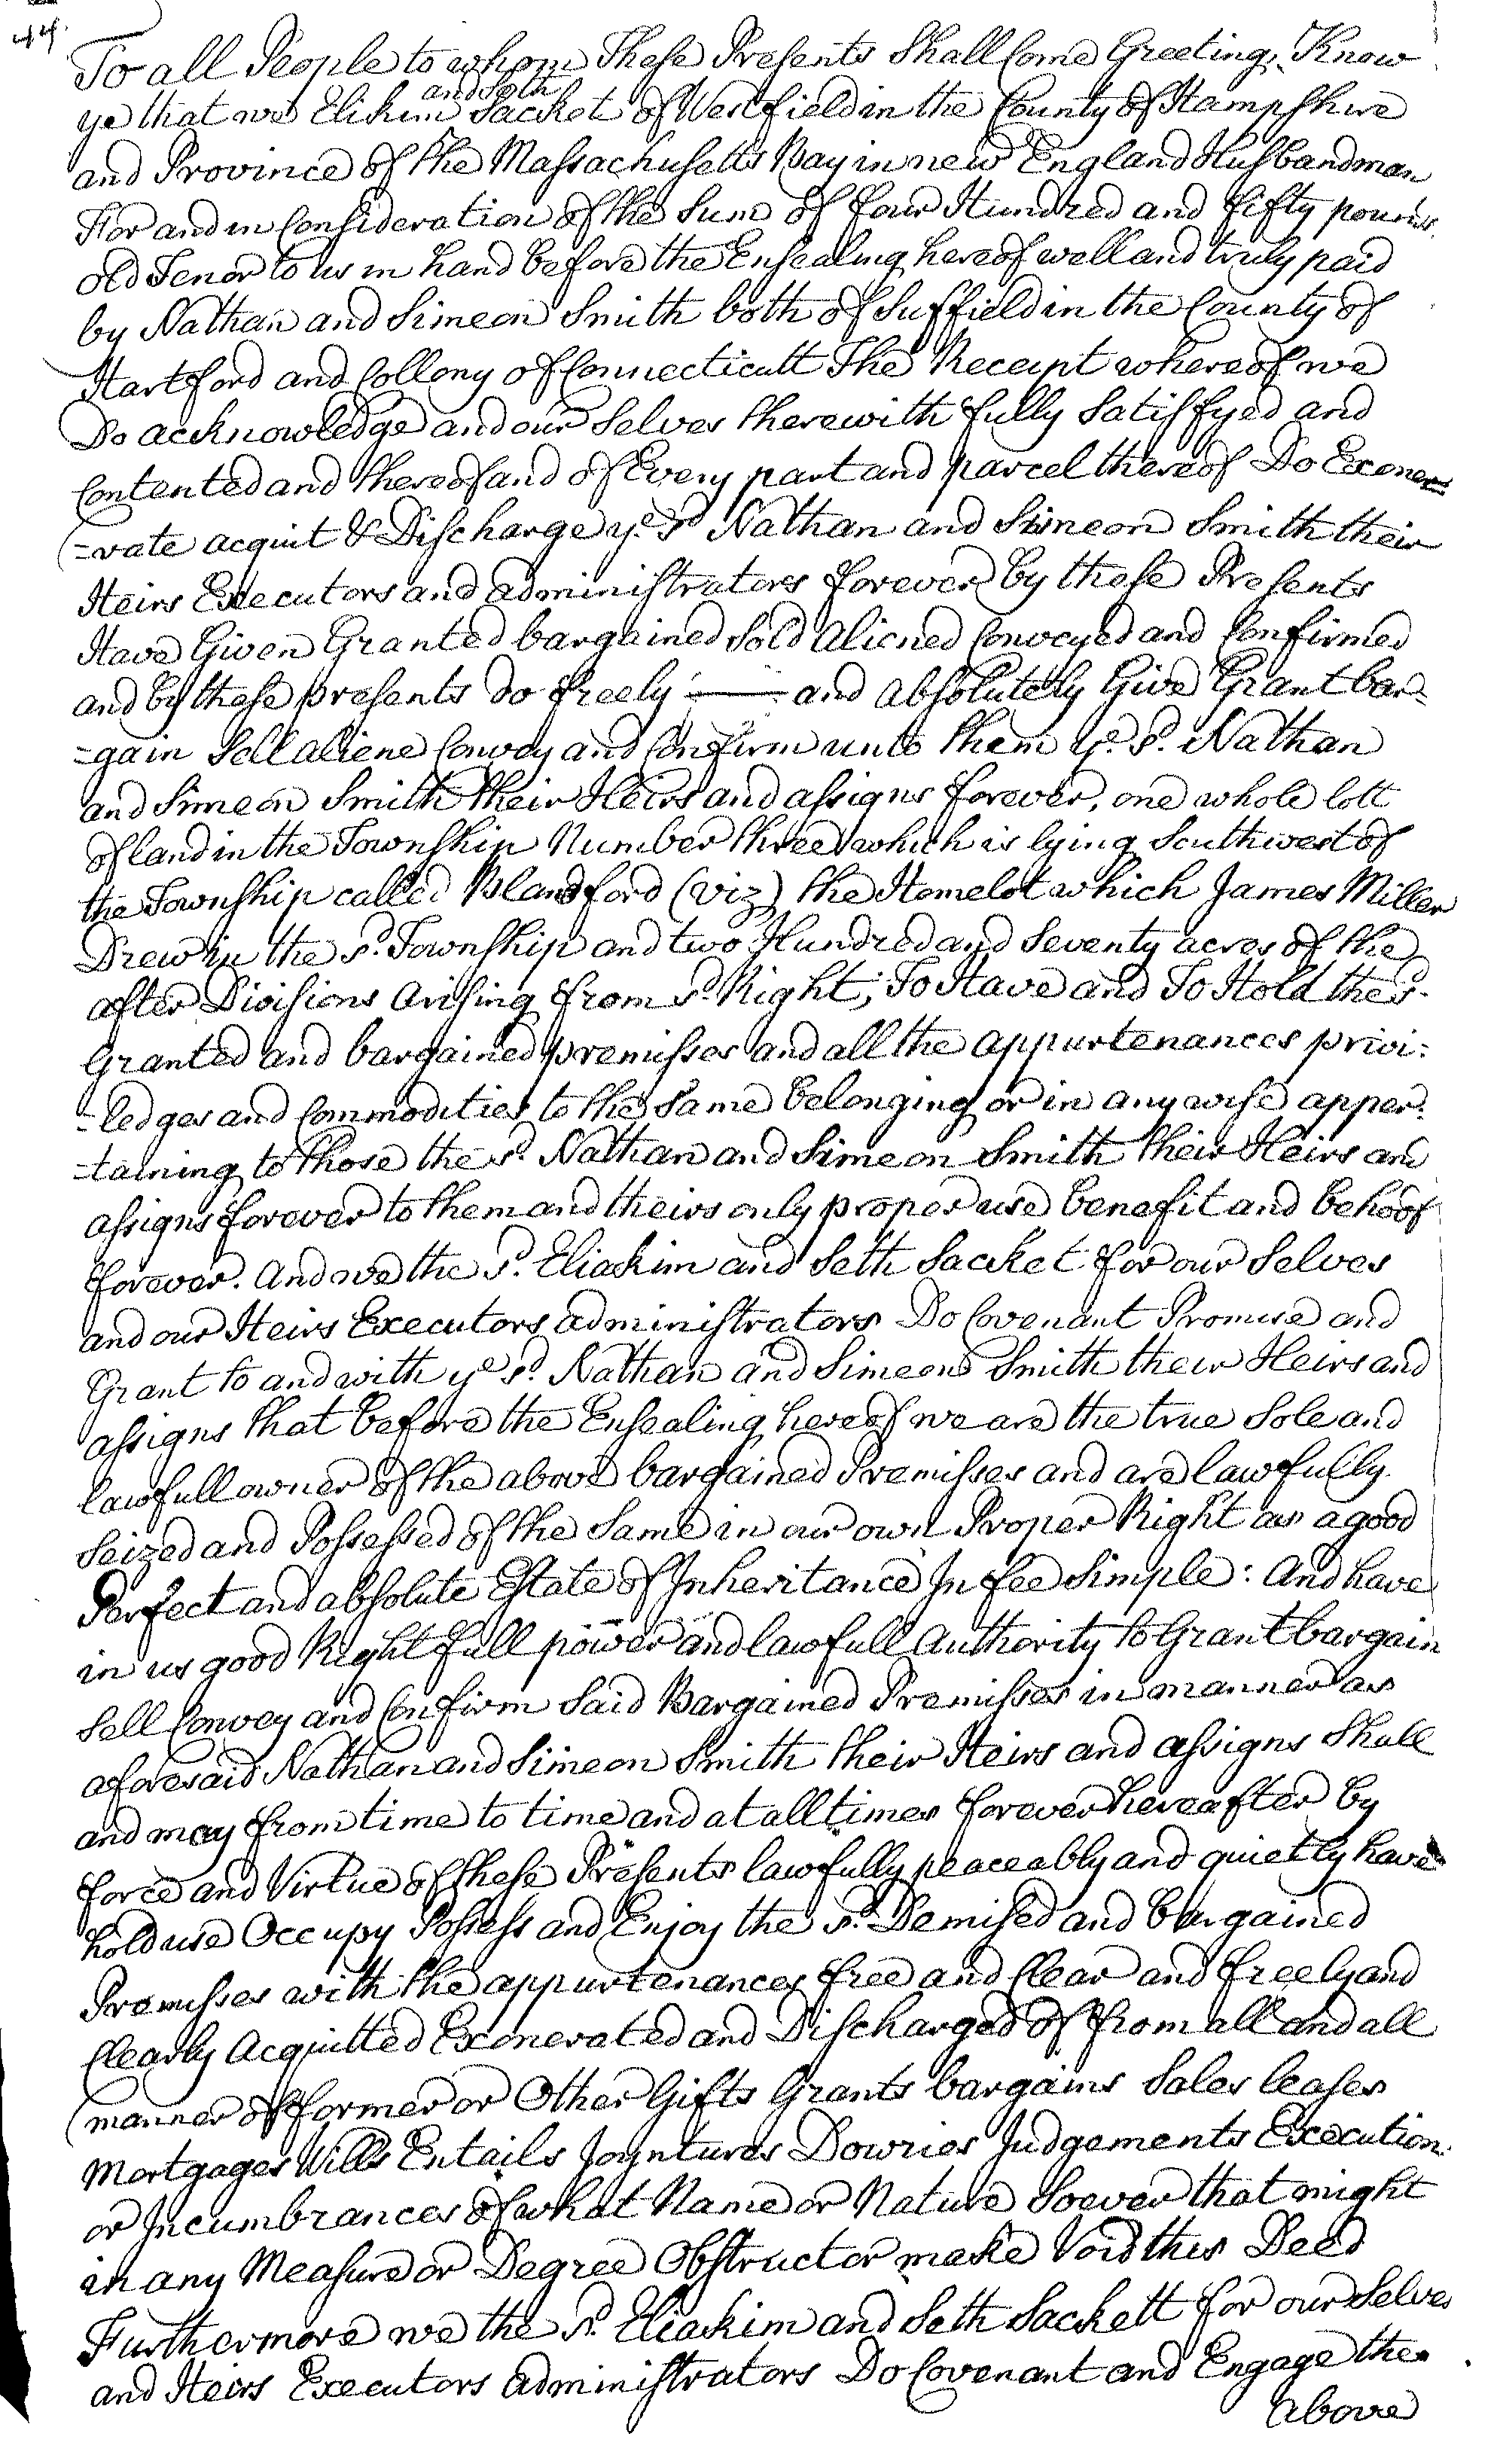 44.
To all People to whom These Presents Shall Come Greeting, Know
and Seth
ye that we Elikim Sacket of Westfield in the County of Hampshire
and Province of the Massachusetts Bay in new England Husbandman
For and in Consideration of the Sum of four Hundred and fifty pounds
old Tenor to us in hand before the Ensealing hereof well and truly paid
by Nathan and Simeon Smith both of Suffield in the County of
Hartford and Collony of Connecticutt The Receipt whereof we
Do acknowledge and our Selves therewith fully Satisfyed and
Contented and thereof and of Every part and parcel thereof Do Exoner
=rate acquit & Discharge ye. sd Nathan and Simeon Smith their
Heirs Executors and administrators forever by these Presents
Have Given Granted bargained Sold aliened Conveyed and Confirmed
and by these presents do freely —— and absolutely Give Grant bar=
=gain Sell aliene Convey and Confirm unto them ye. sd. Nathan
and Simeon Smith their Heirs and assigns forever, one whole lott
of land in the Township Number three which is lying Southwest of
the Township called Blandford (viz) the Homelot which James Miller
Drew in the sd. Township and two Hundred and Seventy acres of the
after Divisions Arising from sd. Right; To Have and To Hold the sd.
Granted and bargained premisses and all the appurtenances privi=
=ledges and Commodities to the Same belonging or in any wise apper=
=taining to those the sd. Nathan and Simeon Smith their Heirs and
assigns forever to them and theirs only proper use benefit and behoof
forever. And we the sd. Eliakim and Seth Sacket for our Selves
and our Heirs Executors administrators Do Covenant Promise and
Grant to and with ye sd. Nathan and Simeon Smith their Heirs and
assigns that before the Ensealing hereof we are the true Sole and
lawfull owner of the above bargained Premisses and are lawfully
Seized and Possessed of the Same in our own Proper Right as a good
Perfect and absolute Estate of Inheritance In fee Simple: And have
in us good Right full power and lawfull Authority to Grant bargain
Sell Convey and Confirm Said Bargained Premisses in manner as
aforesaid Nathan and Simeon Smith their Heirs and assigns Shall
and may from time to time and at all times forever hereafter by
force and Virtue of these Presents lawfully peaceably and quietly have
hold use Occupy Possess and Enjoy the sd. Demised and Bargained
Premisses with the appurtenances free and Clear and freely and
Clearly Acquitted Exonerated and Discharged of from all and all
manner of former or Other Gifts Grants bargains Sales leases
Mortgages Wills Entails Joyntures Dowries Judgements Execution
or Incumbrances of what Name or Nature Soever that might
in any Measure or Degree Obstruct or make Void this Deed
Furthermore we the sd. Eliakim and Seth Sackett for our Selves
and Heirs Executors administrators Do Covenant and Engage the
above